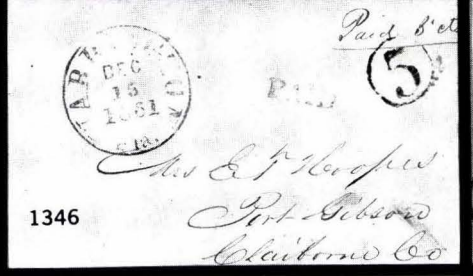 Paid 5 cts
DEC
15
1861
5
PAID
Mrs E F Hooper
Port Gibson
Claiborne Co
1346